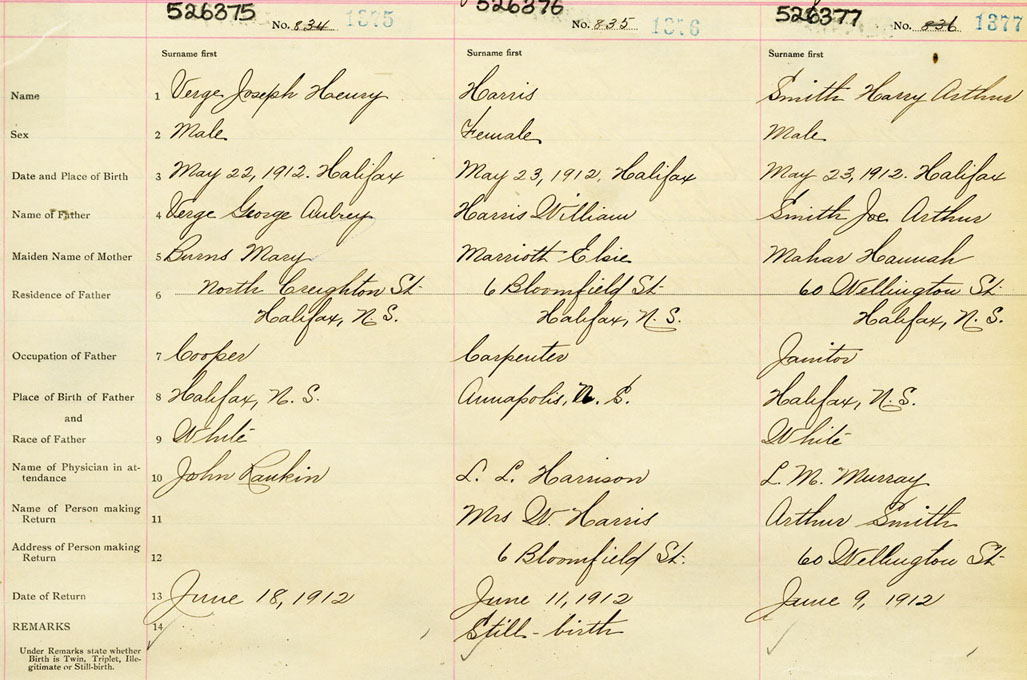 526375 526376 526377
No. 834 1375 No. 835 1376 No. 836 1377
Surname first Surname first Surname first
Name 1 Verge Joseph Henry Harris Smith Harry Arthur
Sex 2 Male Female Male
Date and Place of Birth 3 May 22, 1912. Halifax May 23, 1912. Halifax May 23, 1912. Halifax
Name of Father 4 Verge George Aubrey Harris William Smith Joe Arthur
Maiden Name of Mother 5 Burns Mary Marrioth Elsie Mahar Hannah
Residence of Father 6 North Creighton St. 6 Bloomfield St. 60 Wellington St.
Halifax, N.S. Halifax, N.S. Halifax, N.S.
Occupation of Father 7 Cooper Carpenter Janitor
Place of Birth of Father 8 Halifax, N.S. Annapolis, N.S. Halifax, N.S.
and
Race of Father 9 White White
Name of Physician in at-
tendance 10 John Rankin L. L. Harrison L. M. Murray
Name of Person making
Return 11 Mrs W. Harris Arthur Smith
Address of Person making
Return 12 6 Bloomfield St. 60 Wellington St.
Date of Return 13 June 18, 1912 June 11, 1912 June 9, 1912
REMARKS 14 Still-birth
Under Remarks state whether
Birth is Twin, Triplet, Ille-
gitimate or Still-birth.